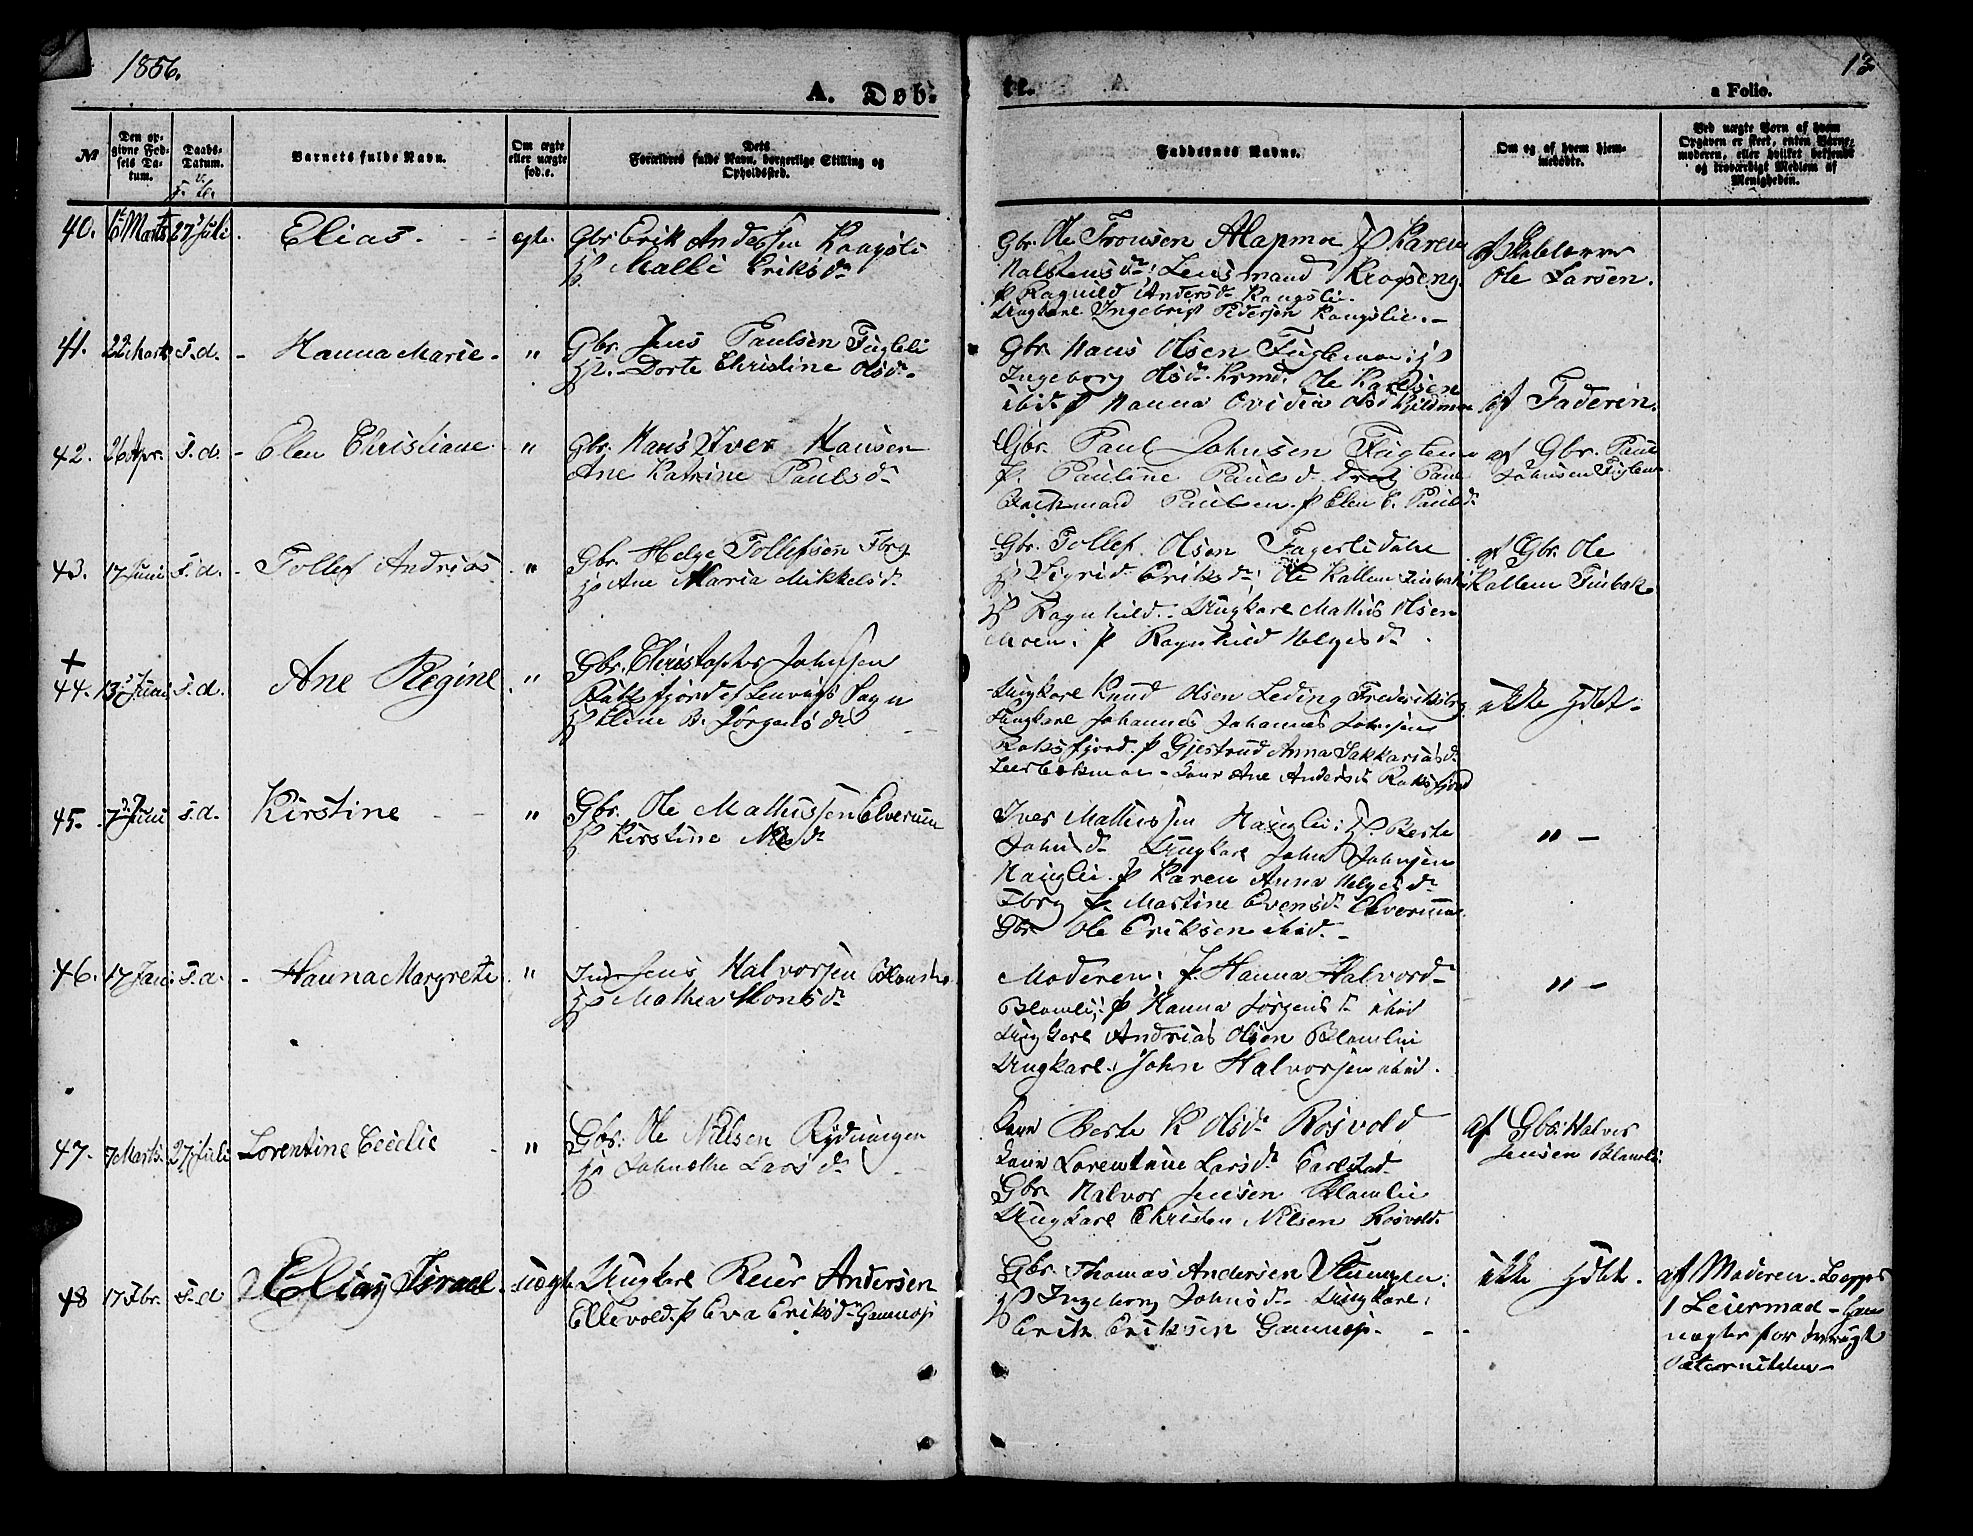 1856.
13
A. Døb-
te.
a Folio.
№
Den op-
givne Fød-
sels Da-
tum.
Daabs-
Datum.
Barnets fulde Navn.
Om ægte
eller uægte
fød.e.
Dets
Forældres fulde Navn, borgerlige Stilling og
Opholdssted.
Faddernes Navne.
Om og af hvem hjem-
medøbt.
Ved uægte Børn af hvem
Opgaven er skeet, enten Barne-
moderen, eller hvilket bekjendt
og troværdigt Medlem af
Menigheden.
40. 1 Marts 27 Juli. Elias. egte. Gbr Erik Anderssen Kongsli
H Malli Eriksdr
Gbr. Ole Tronsen Alapmo H Karen
Halstensdr; Lensmand Krogseng
P Ragnild Andersdr Kongslie.
Ungkarl Ingebrigt Pedersen Kongslie.
af Skolelærer
Ole Larsen.
41. 22 Marts s.d. Hanna Marie. " Gbr. Jens Paulsen Fugleli
H. Dorte Christine Olsdr.
Gbr. Hans Olsen Fuglemo; H
Ingeborg Olsdr. Krmd. Ole Karlsen
ibid. P Hanna Ovidia Olsdr Kjeldmo
af Faderen.
42. 26 Apr. s.d. Elen Christiane " Gbr. Hans Iver Hansen
Ane Katrine Paulsdr
Gbr. Paul Johnsen Fuglemo
P. Pauline Paulsdr. Paul
Bachmand Paulsen. P Elen C. Paulsdr
af Gbr. Paul
Johnsen Fuglem
43. 17 Juni s.d. Tollef Andrias " Gbr. Helge Tollefsen Fbrg
H Ane Maria Mikkelsdr
Gbr. Tollef Olsen Fagerlidalen
H Sigrid Eriksdr; Ole Kallem Finbak
H Ragnhild. Ungkarl Mathis Olsen
Moen; P Ragnhild Helgesdr.
af Gbr. Ole
Kallem Finbak
+
44. 13 Juni s.d. Ane Regine " Gbr. Christopher Johnssen
Rakfjord af Lenvigs Sogn
H Eline B. Jørgensdr
Ungkarl Knud Olsen Leding Frederiksbrg
Ungkarl Johannes Johannes Johnsen
Rakfjord. P Gjertrud Anna Sakkariasdr
Leerbekmoe. Ane Andersdr Rakfjord
ikke hjdbt.
45. 7 Juni s.d. Kirstine " Gbr. Ole Mathissen Elverum
H Kirstine Nilsdr
Iver Mathissen Hauglie; H. Berte
Johnsdr Ungkarl John Johnsen
Hauglie. P Karen Anna Helgesdr
Fbrg P. Martine Evensdr Elverum.
Gbr Ole Eriksen ibid.
" -
46. 17 Jan: s.d. Hanna Margrete " Jens Halvorsen
H Mathea Monsdr
Moderen; P. Hanna Halvordr
Blomli; P Hanna Jørgensdr ibid
Ungkarl Andrias Olsen Blomlie
Ungkarl; John Halvorsen ibid.
" -
47. 7 Marts. 27 Juli Lorentine Cecilie " Gbr. Ole Nilsen Rydningen
H Johnethe Larsdr
Berte K Olsdr Rosvold
Lorentine Larsdr Carlstad
Gbr. Halvor Jensen Blomlie
Ungkarl Christen Nilsen Rosvold.
af Gbr. Halvor
Jensen Blomli.
48 17 Fbr. s.d Elias Israel. uægte Ungkarl Reier Andersen
Ellevold. P Eva Eriksdr Gamnæs
Gbr Thomas Andersen
H Ingeborg Johnsdr Ungkarl:
Erik Eriksen Gamnæs.
ikke hjdbt.
af Moderen.
1 Leiermaal - han
nægter for øvrigt
Paterniteten